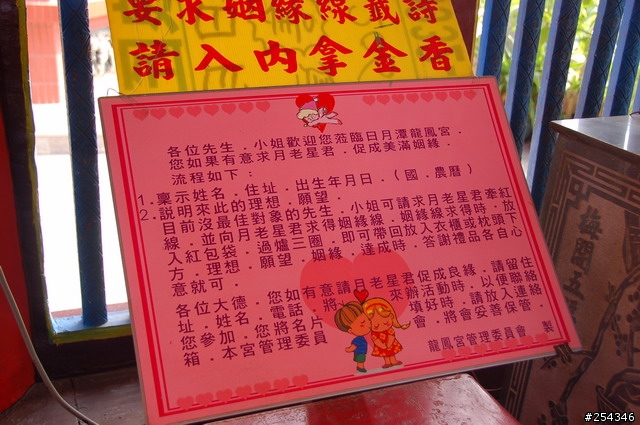 要求姻緣線籤詩
請入內拿金香
各位先生．小姐歡迎您蒞臨日月潭龍鳳宮．
您如果有意求月老星君．促成美滿姻緣．
流程如下：
1.稟示姓名．住址．出生年月日．（國．農曆）
2.說明來此的對象．願望．
目前沒最佳理想的先生．小姐可請求月老星君牽紅
線．並向月老星君求得姻緣線．姻緣線求得時．放
入紅包袋．過爐三圈．即可帶回放入衣櫃或枕頭下
方就可．願望．姻緣．達成時．答謝禮品各自心
意
各位大德．您如有意請月老星君促成良緣．請留住
址．姓名．電話．將來辦活動時．以便聯絡
您參加．您將名片填好．請放入連絡
箱．本宮管理委員會．將會妥善保管
龍鳳宮管理委員會 製
#254346